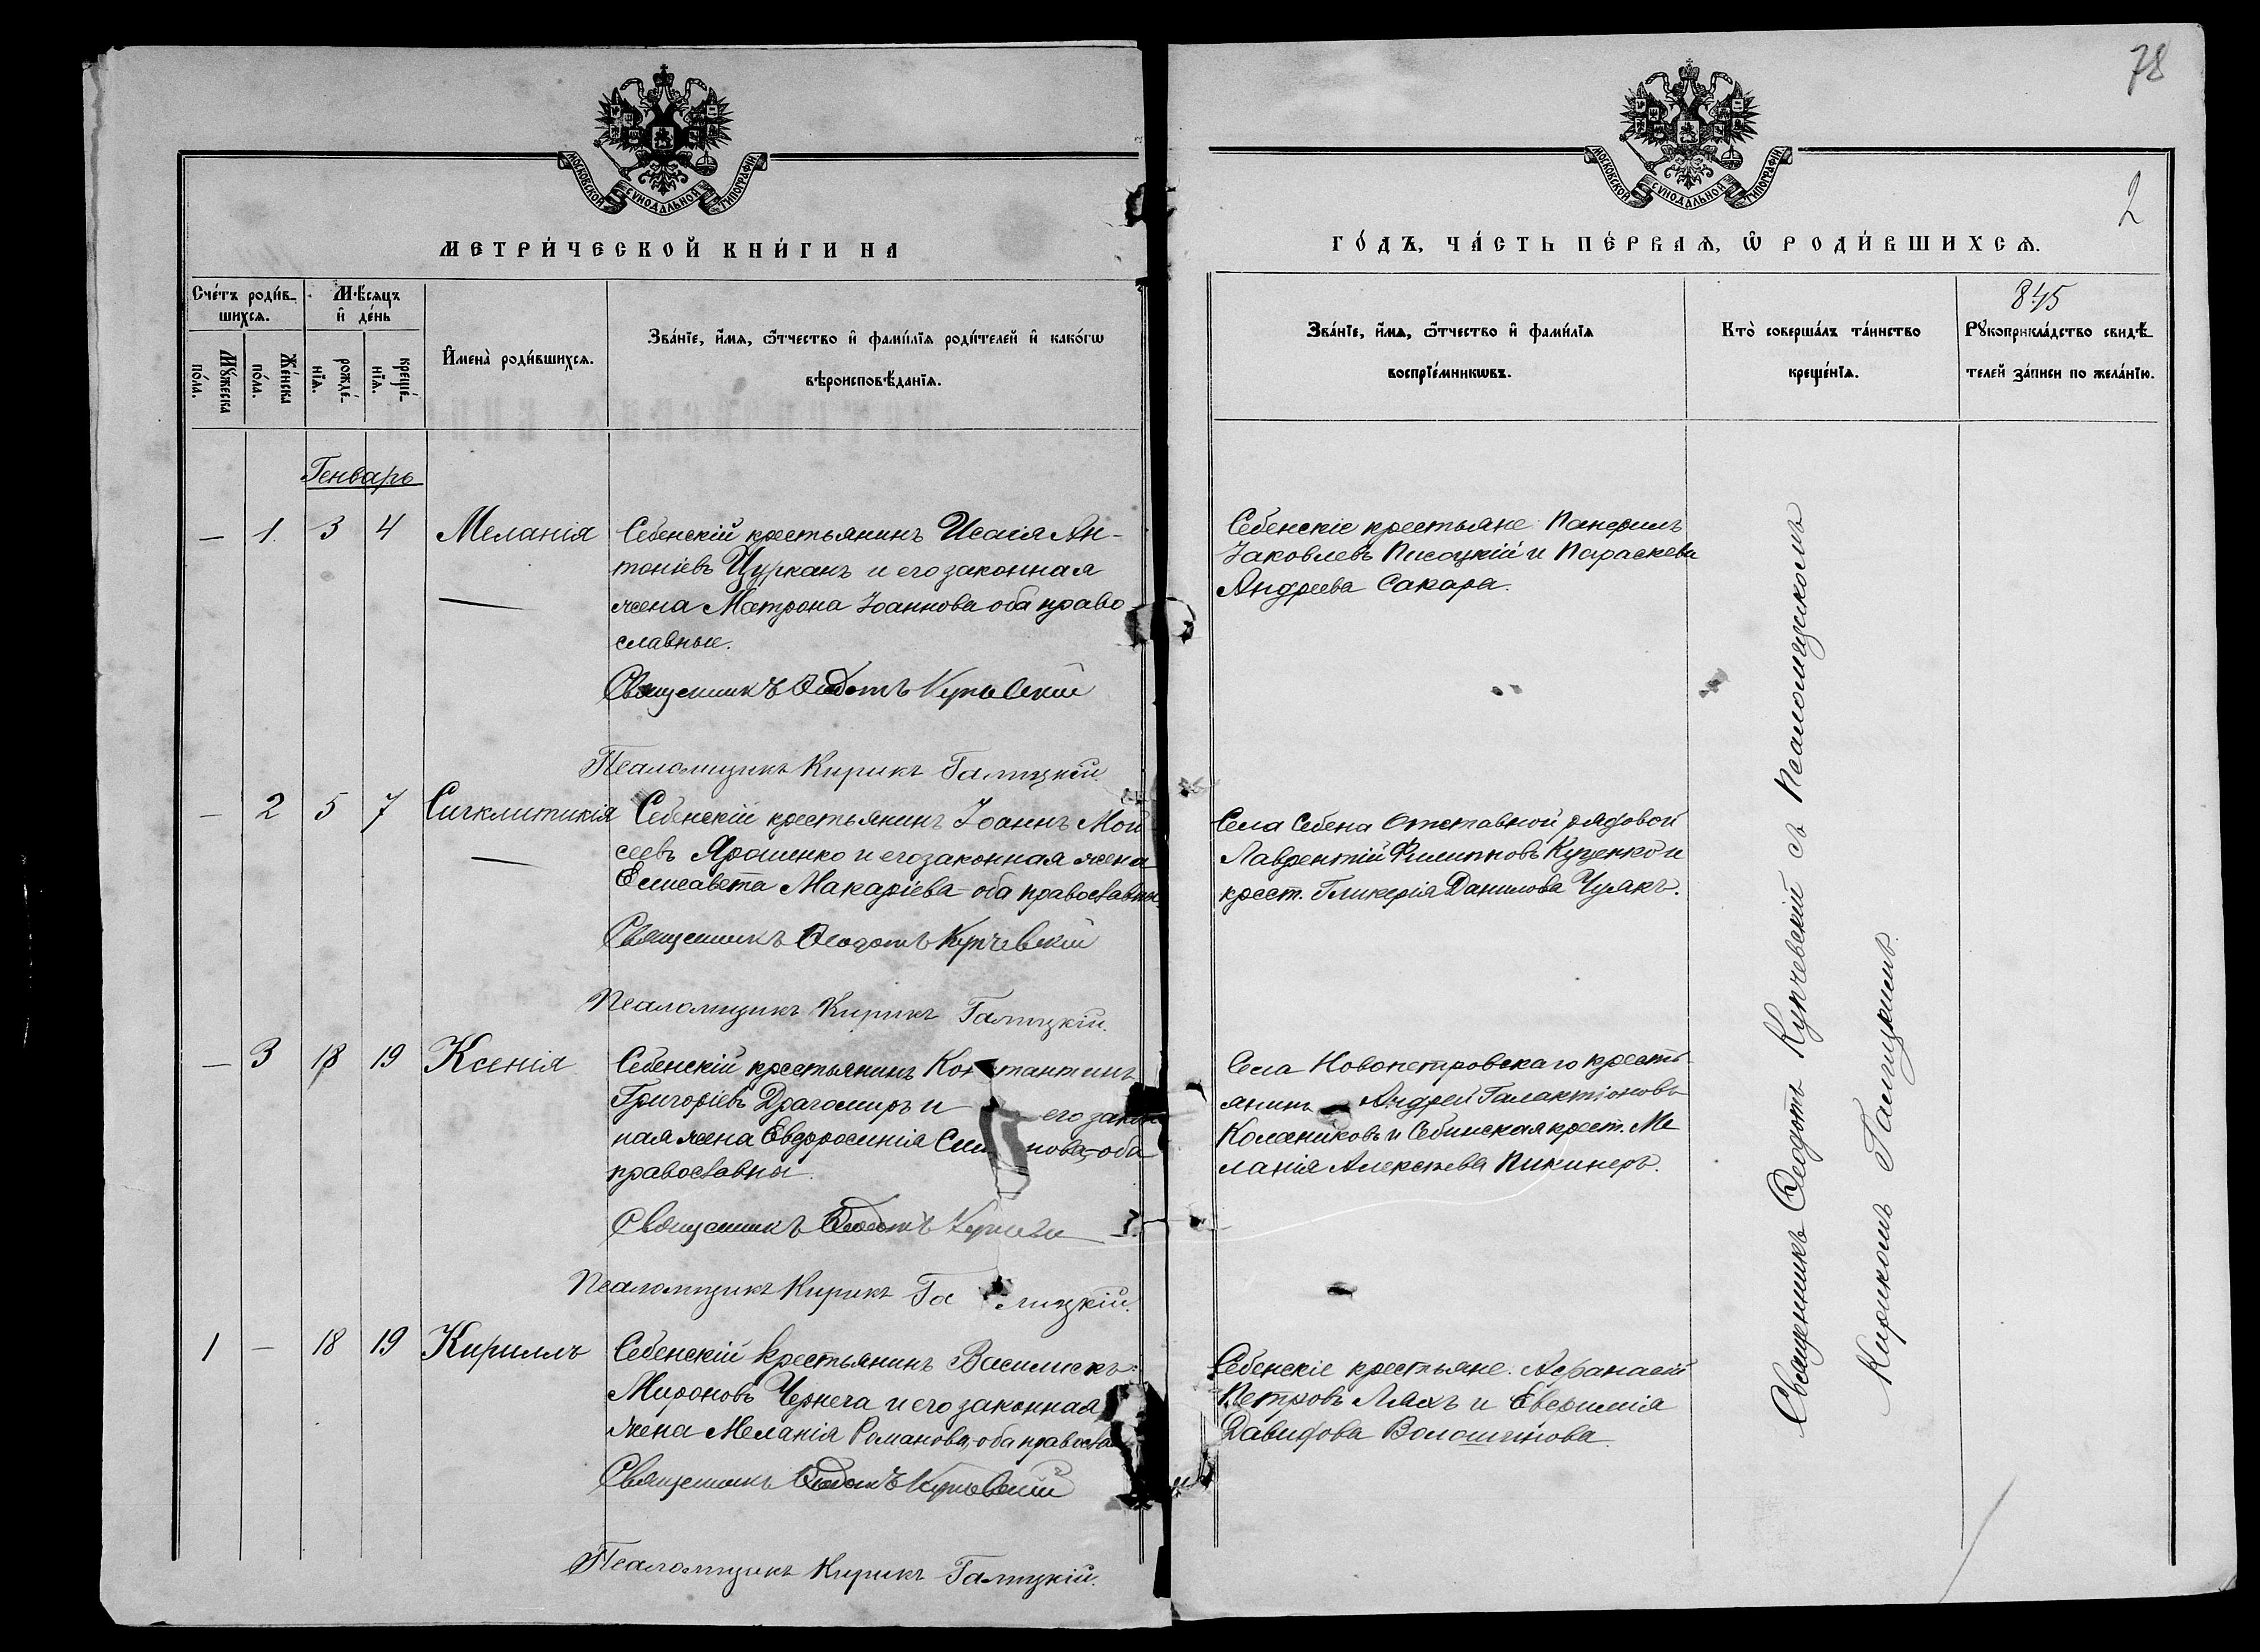 78
МОСКОВСКОЙ СѴНОДАЛЬНОЙ ТИПОГРАФІИ
МОСКОВСКОЙ СѴНОДАЛЬНОЙ ТИПОГРАФІИ
2
МЕТРИ́ЧЕСКОЙ КНИ́ГИ НА
ГО́ДЪ, ЧА́СТЬ ПЕ́РВАѦ, Ѡ҆ РОДИ́ВШИХСѦ.
Сче́тъ роди́в-
шихсѧ.
Мѣ́сѧцъ
и҆ де́нь
Мꙋ́жеска
по́ла.
Же́нска
по́ла.
рожде́-
нїѧ.
креще́-
нїѧ.
И҆мена̀ роди́вшихсѧ.
Зва́нїе, и҆́мѧ, ѻ҆́тчество и҆ фами́лїѧ роди́телей и҆ како́гѡ
вѣроисповѣ́данїѧ.
Зва́нїе, и҆́мѧ, ѻ҆́тчество и҆ фами́лїѧ
воспрїе́мникѡвъ.
Кто̀ соверша́лъ та́инство
креще́нїѧ.
845
Рꙋкоприкла́дство свидѣ́-
телей за́писи по жела́нїю.
Генварь
— 1. 3 4 Меланія
Себенскій крестьянинъ Исаія Ан-
тоніевъ Цурканъ и его законная
жена Матрона Іоаннова оба право
славные.
Священникъ Ѳеодотъ Купчевскій
Псаломщикъ Кирикъ Галицкій.
Себенскіе крестьяне Панфилъ
Іаковлевъ Писоцкій и Параскева
Андреева Сакара.
— 2 5 7 Сигклитикія
Себенскій крестьянинъ Іоаннъ Мои
сеевъ Ярошенко и его законная жена
Елисавета Макаріева - оба православны.
Священникъ Ѳеодотъ Купчевскій
Псаломщикъ Кирикъ Галицкій.
Села Себена Отставной рядовой
Лаврентій Филипповъ Куценко и
крест. Гликерія Данилова Чулакъ.
— 3 18 19 Ксенія
Себенскій крестьянинъ Кон тантинъ
Григоріевъ Драгомиръ и его закон
ная жена Евдросинія Сим нова, - оба
православны.
Священникъ Ѳеодотъ
Псаломщикъ Кирикъ Га лицкій.
Села Новопетровскаго кресть
янинъ Андрей Галактіоновъ
Колесниковъ и Себинская крест. Ме
ланія Алексѣева Пикинеръ.
1 — 18 19 Кириллъ
Себенскій крестьянинъ Василискъ
Мироновъ Чернега и его законная
жена Меланія Романова, - оба правосла
Священникъ Ѳеодотъ Купчевскій
Псаломщикъ Кирикъ Галицкій.
Себенскіе крестьяне: Афанасій
Петровъ Ляхъ и Евфимія
Давидова Волошинова.
Священникъ Ѳеодотъ Купчевскій съ Псаломщикомъ
Кирикомъ Галицкимъ.